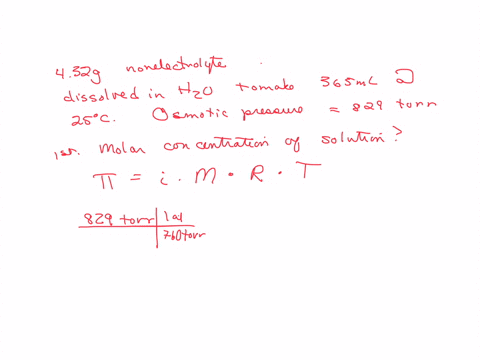 4.32g nonelectrolyte
dissolved in H₂O to make 365mL @
25°C. Osmotic pressure = 829 torr
1st. Molar concentration of solution?
π = i · M · R · T
829 torr | 1 at
760 torr